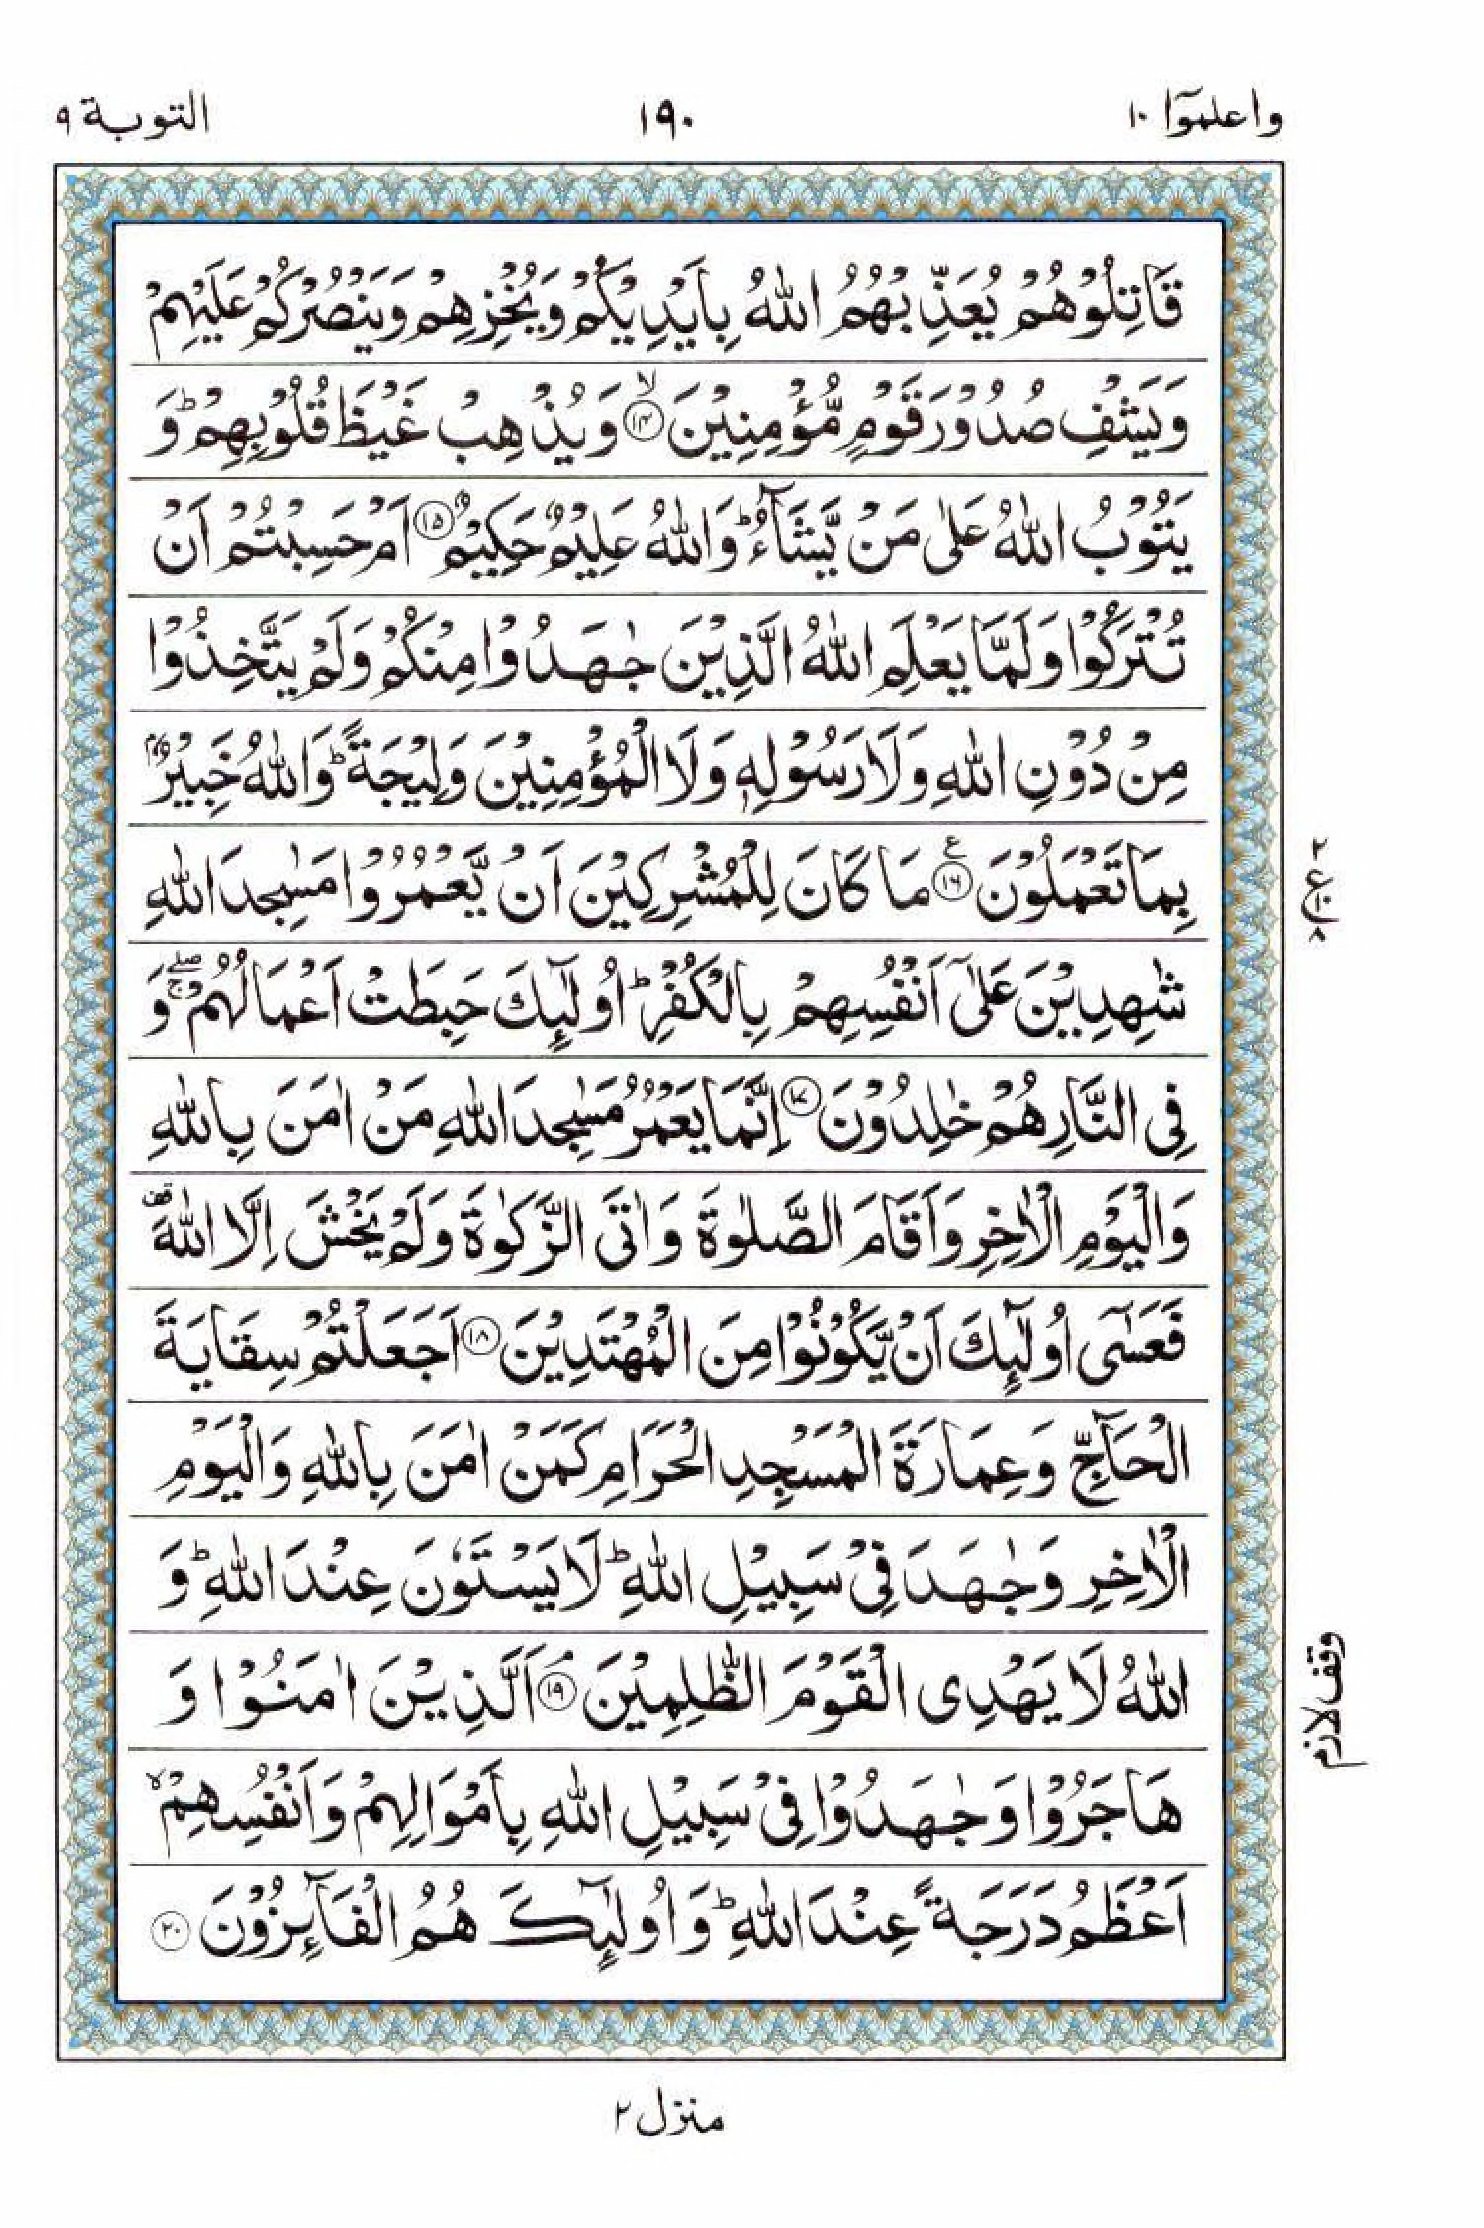 واعلموٓا ١٠
١٩٠
التوبة ٩
قَاتِلُوۡهُمۡ يُعَذِّبۡهُمُ اللّٰهُ بِاَيۡدِيۡكُمۡ وَيُخۡزِهِمۡ وَيَنۡصُرۡكُمۡ عَلَيۡهِمۡ
وَيَشۡفِ صُدُوۡرَ قَوۡمٍ مُّؤۡمِنِيۡنَ ۙ‏﴿۱۴﴾ وَيُذۡهِبۡ غَيۡظَ قُلُوۡبِهِمۡ‌ ؕ وَ
يَتُوۡبُ اللّٰهُ عَلٰى مَنۡ يَّشَآءُ‌ ؕ وَاللّٰهُ عَلِيۡمٌ حَكِيۡمٌ‏﴿۱۵﴾ اَمۡ حَسِبۡتُمۡ اَنۡ
تُتۡرَكُوۡا وَلَمَّا يَعۡلَمِ اللّٰهُ الَّذِيۡنَ جٰهَدُوۡا مِنۡكُمۡ وَلَمۡ يَتَّخِذُوۡا
مِنۡ دُوۡنِ اللّٰهِ وَلَا رَسُوۡلِهٖ وَلَا الۡمُؤۡمِنِيۡنَ وَلِيۡجَةً‌ ؕ وَاللّٰهُ خَبِيۡرٌۢ
بِمَا تَعۡمَلُوۡنَ‏﴿۱۶﴾ مَا كَانَ لِلۡمُشۡرِكِيۡنَ اَنۡ يَّعۡمُرُوۡا مَسٰجِدَ اللّٰهِ
شٰهِدِيۡنَ عَلٰٓى اَنۡفُسِهِمۡ بِالۡـكُفۡرِ‌ؕ اُولٰۤٮِٕكَ حَبِطَتۡ اَعۡمَالُهُمۡ ۖۚ وَ
فِى النَّارِ هُمۡ خٰلِدُوۡنَ‏﴿۱۷﴾ اِنَّمَا يَعۡمُرُ مَسٰجِدَ اللّٰهِ مَنۡ اٰمَنَ بِاللّٰهِ
وَالۡيَوۡمِ الۡاٰخِرِ وَاَقَامَ الصَّلٰوةَ وَاٰتَى الزَّكٰوةَ وَلَمۡ يَخۡشَ اِلَّا اللّٰهَ‌ قف
فَعَسٰٓى اُولٰۤٮِٕكَ اَنۡ يَّكُوۡنُوۡا مِنَ الۡمُهۡتَدِيۡنَ‏﴿۱۸﴾ اَجَعَلۡتُمۡ سِقَايَةَ
الۡحَآجِّ وَعِمَارَةَ الۡمَسۡجِدِ الۡحَرَامِ كَمَنۡ اٰمَنَ بِاللّٰهِ وَالۡيَوۡمِ
الۡاٰخِرِ وَجٰهَدَ فِىۡ سَبِيۡلِ اللّٰهِ‌ ؕ لَا يَسۡتَوٗنَ عِنۡدَ اللّٰهِ ‌ؕ وَ
اللّٰهُ لَا يَهۡدِى الۡقَوۡمَ الظّٰلِمِيۡنَ‌ۘ‏﴿۱۹﴾ اَلَّذِيۡنَ اٰمَنُوۡا وَ
هَاجَرُوۡا وَجٰهَدُوۡا فِىۡ سَبِيۡلِ اللّٰهِ بِاَمۡوَالِهِمۡ وَاَنۡفُسِهِمۡۙ
اَعۡظَمُ دَرَجَةً عِنۡدَ اللّٰهِ‌ؕ وَاُولٰۤٮِٕكَ هُمُ الۡفَآٮِٕزُوۡنَ‏﴿۲۰﴾
٢ ع ١٠ ٨
وقف لازم
منزل ٢